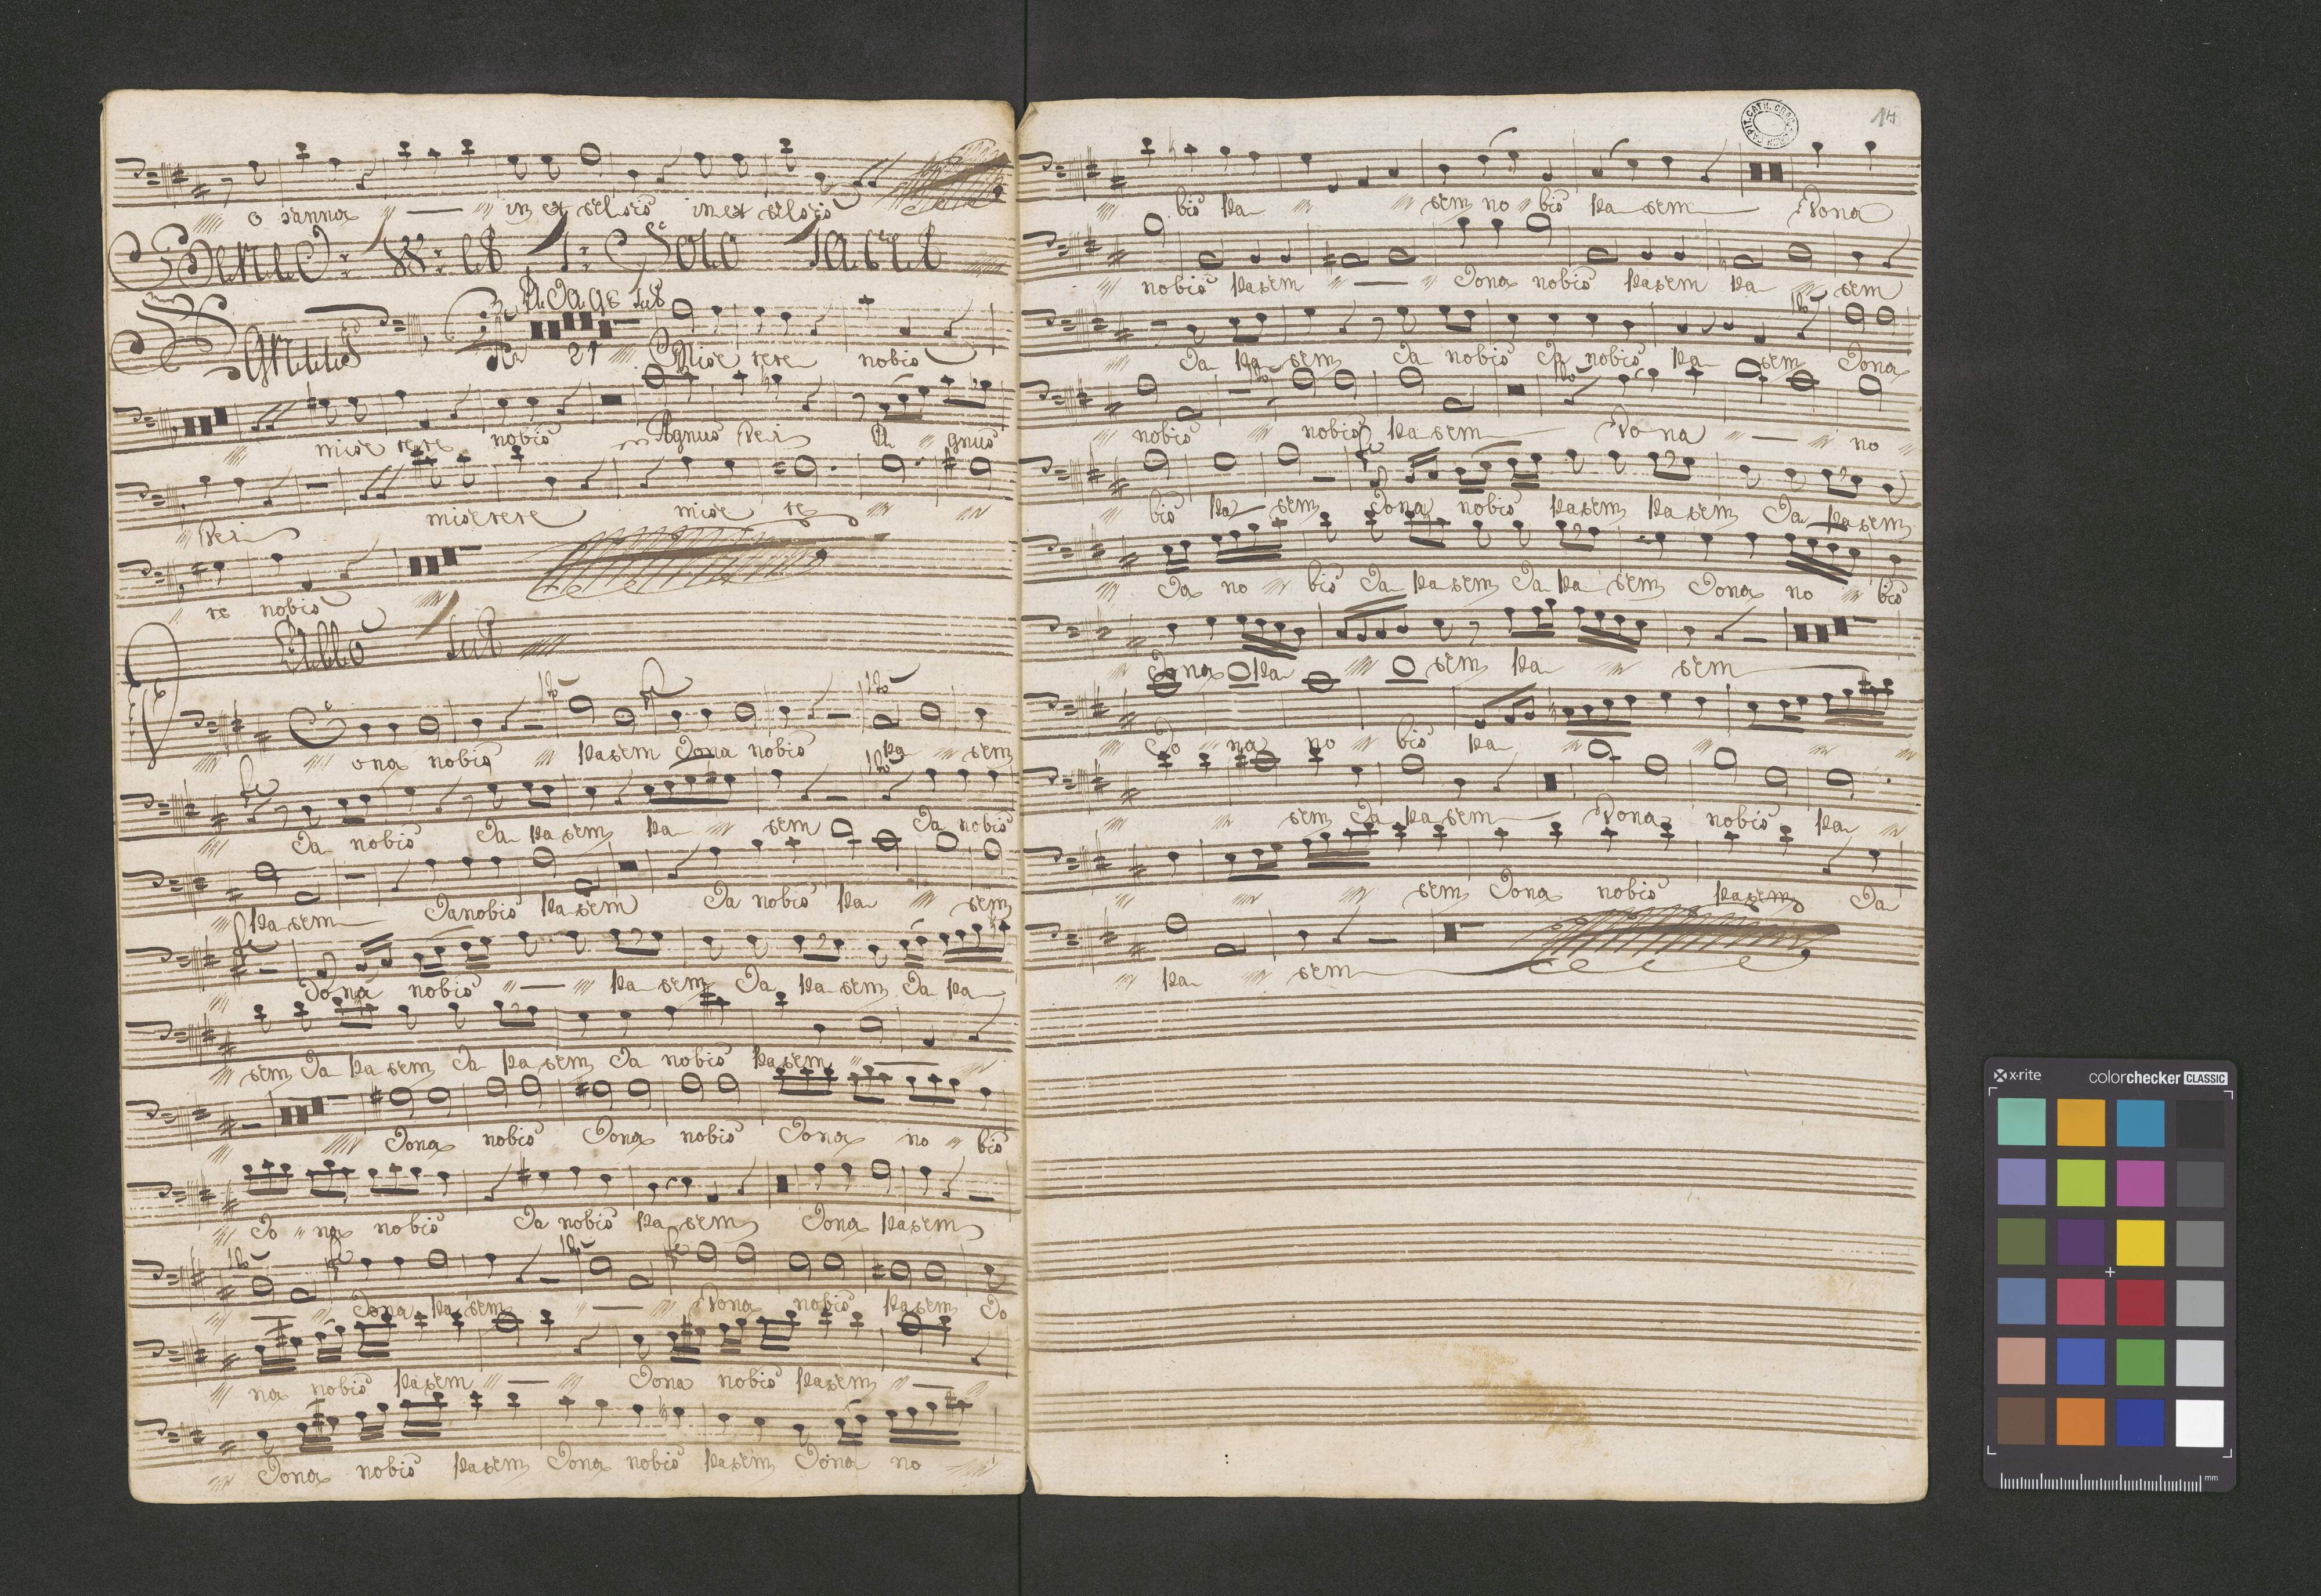 o sanna in ex selsis in ex selsis
Solo Tacet
Adagio
Agnus 21 Mise rere nobis
mise rere nobis Agnus Dei A gnus
Dei miserere mise re
re nobis
ona nobis pasem Dona nobis pa sem
Da nobis Da pa sem pa sem Da nobis
pa sem Da nobis pa sem Da nobis pa sem
Do na nobis pa sem Da pa sem Da pa
sem Da pa sem Da pa sem Da nobis pa sem
Dona nobis Dona nobis Dona no bis
Do na nobis Da nobis pa sem Dona pasem
Dona pa sem Dona nobis pasem Do
na nobis pasem Dona nobis pasem
Dona nobis pasem Dona nobis pasem Dona no
14
bis pa sem no bis pa sem Dona
nobis pasem Dona nobis pasem pa sem
Da pa sem Da nobis Da nobis pa sem Dona
nobis nobis pa sem Do na no
bis pa sem Dona nobis pasem pa sem Da pasem
Da no bis Da pa sem Da pa sem Dona no bis
Dona pa sem pa sem
Do na no bis pa
sem Da pa sem Dona nobis pa
sem Dona nobis pasem Da
pa sem
x-rite colorchecker CLASSIC
mm